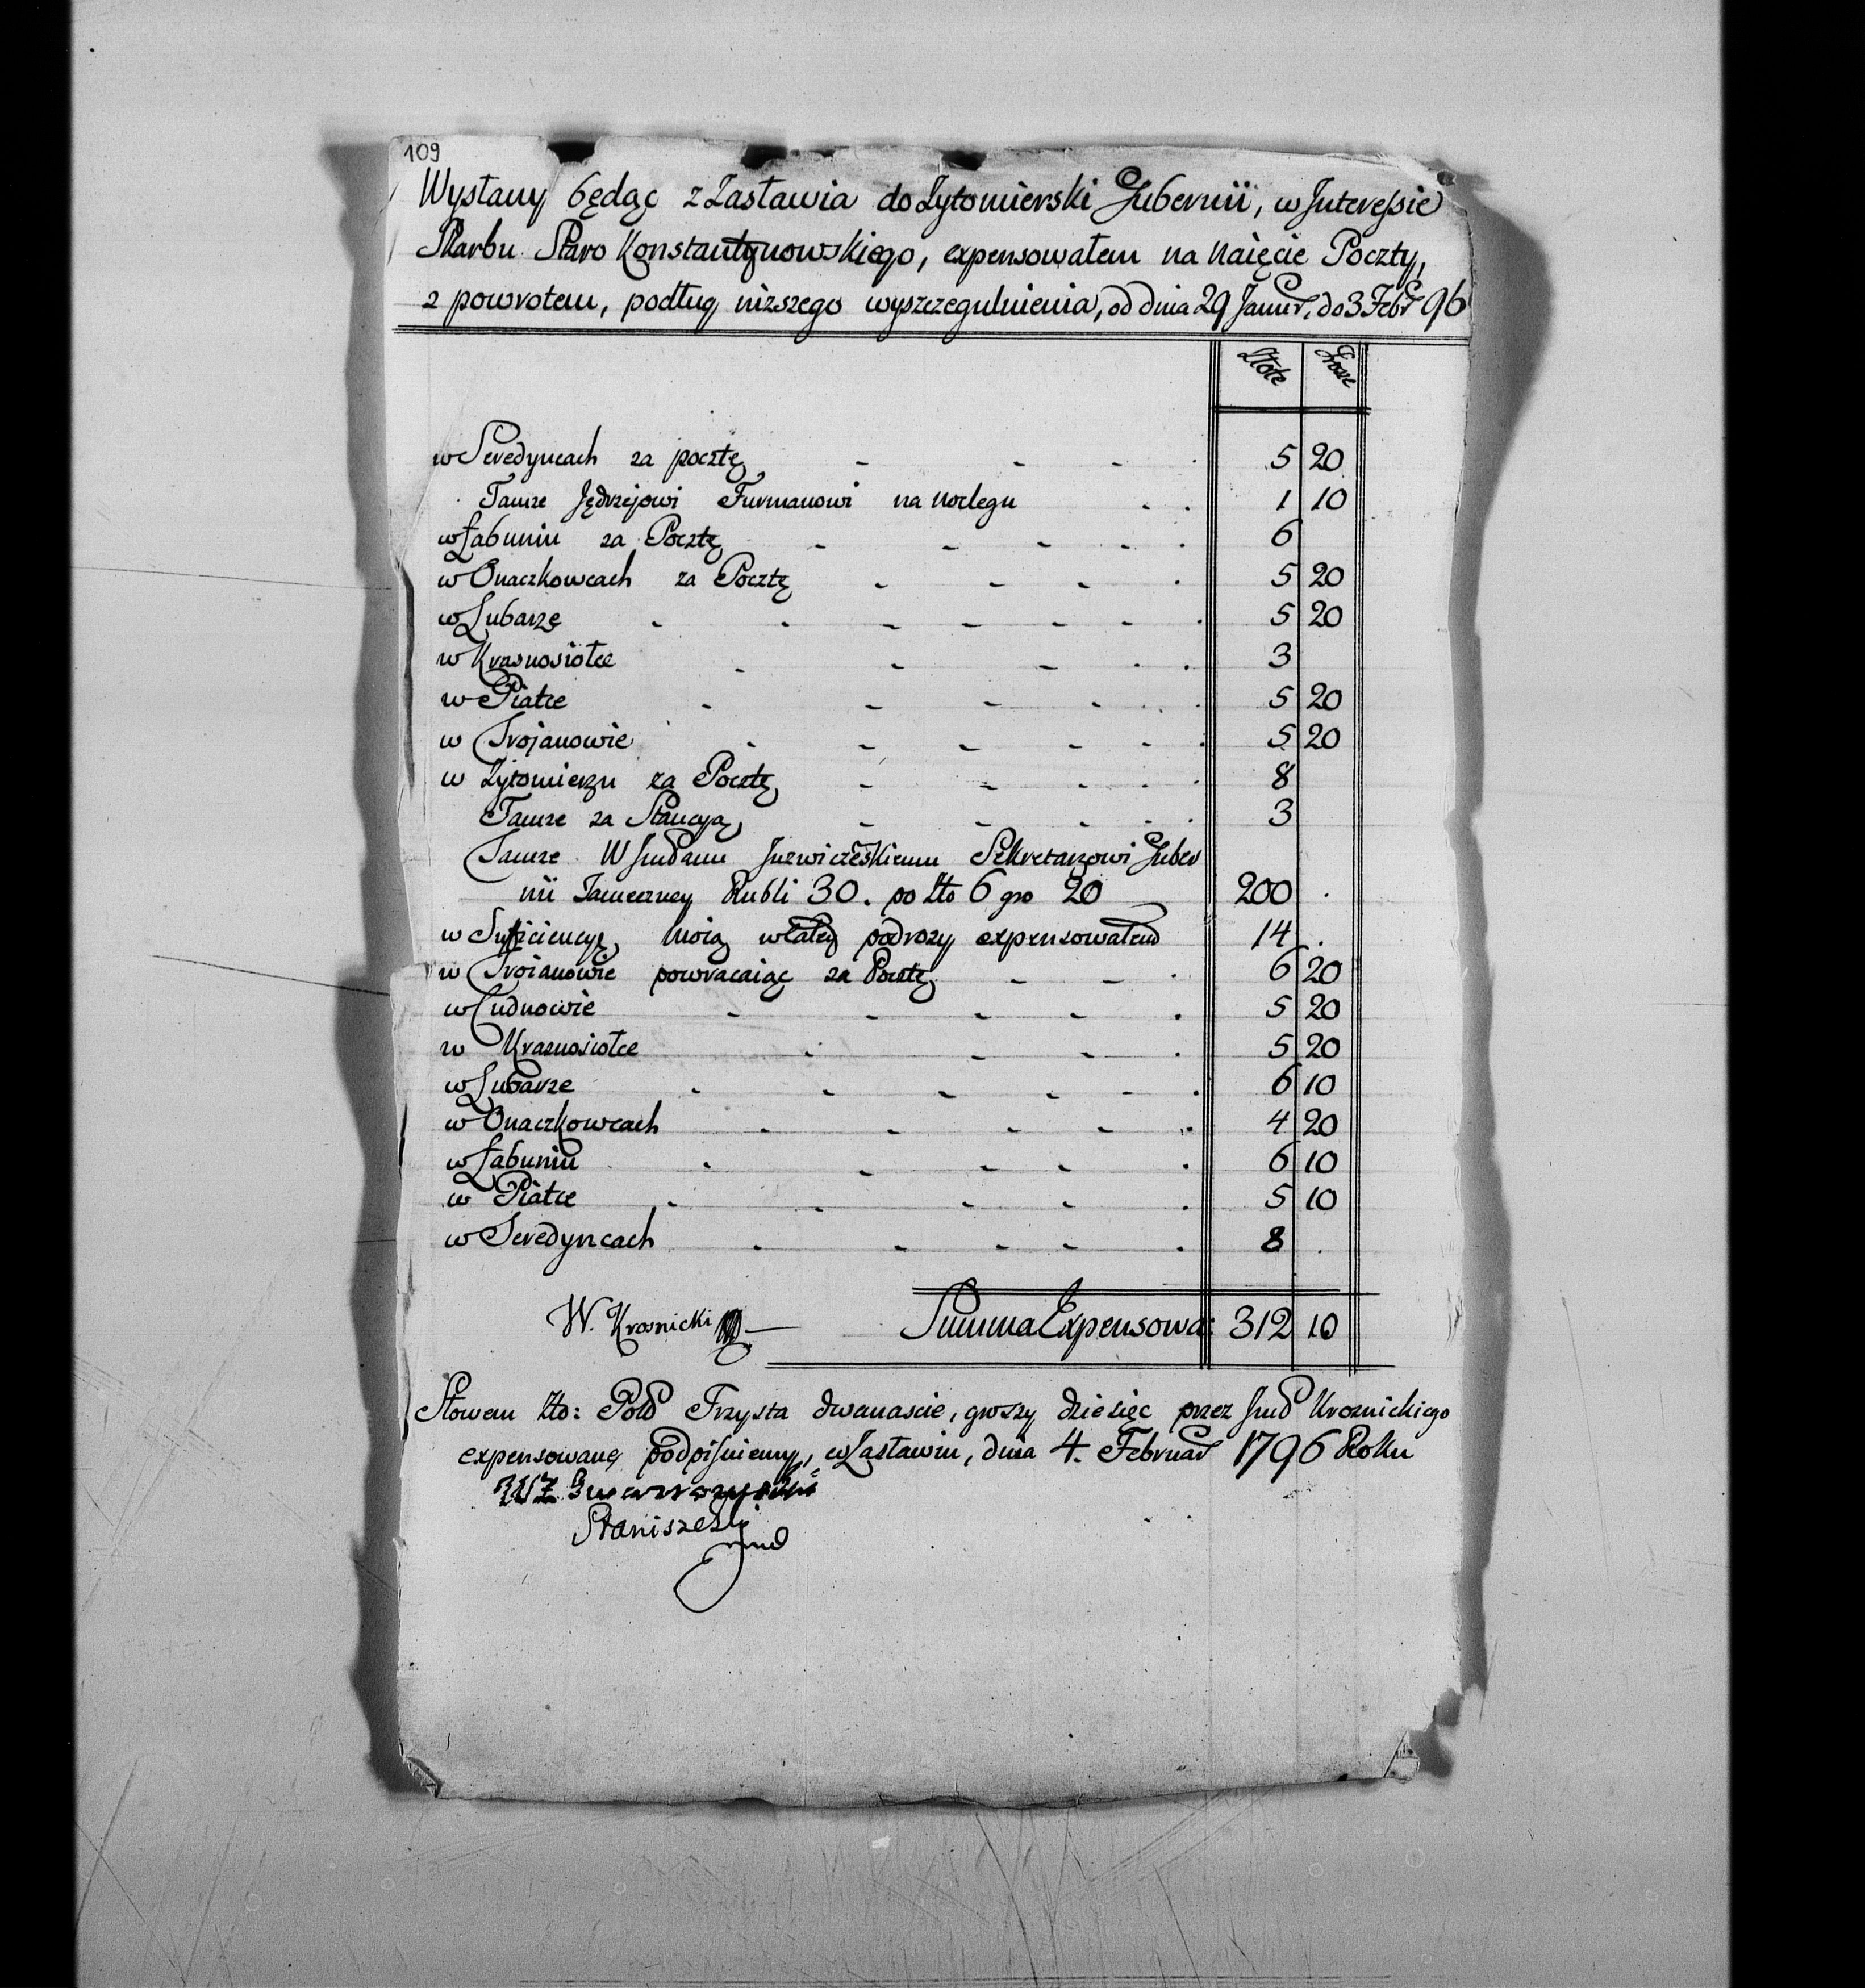 109
Wysłany będąc z Zasławia do Zytomierski Gubernii, w Interessie
Skarbu Staro Konstantynowskiego, expensowałem na naięcie Poczty,
z powrotem, podług niższego wyszczegulnienia, od dnia 29 Januar. do 3 Febr 96
Złote Grosze
w Seredyncach za pocztę 5 20
Tamze Jędrzejowi Furmanowi na noclegu 1 10
w Łabuniu za Pocztę 6
w Onaczkowcach za Pocztę 5 20
w Lubarze 5 20
w Krasnosiołce 3
w Piatce 5 20
w Trojanowie 5 20
w Zytomierzu za Pocztę 8
Tamze za Stancyą 3
Tamze W Jmdanu Sekretarzowi Guber
nii Tameczney Rubli 30. po zło 6 gro 20 200 .
w moią w całey podrozy expensowałem 14 .
w Troianowie powracaiąc za Pocztę 6 20
w Cudnowie 5 20
w Krasnosiołce 5 20
w Lubarze 6 10
w Onaczkowcach 4 20
w Łabuniu 6 10
w Piatce 5 10
w Seredyncach 8 .
W. Krosnicki Summa Expensowa: 312 10
Słowem zło: Pols Trzysta dwanascie, groszy dziesięc przez Jmd Krosnickiego
expensowane podpisuiemy, w Zasławiu, dnia 4. Februar 1796 Roku
Staniszewski